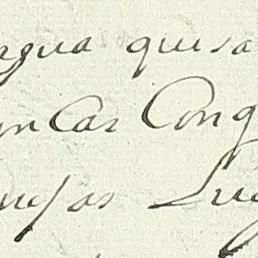 ngua quisa
incas Conq
uyas Lug